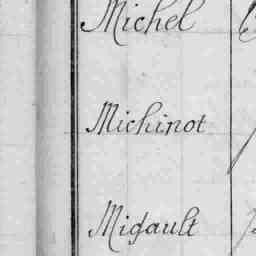 Michel
Michinot
Migault